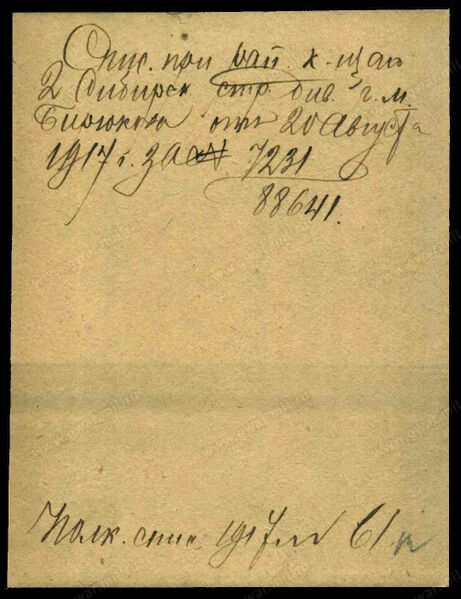 Спис. при рап. к-щаго
2 Сибирск стр. див. г. м.
Бирюкова от 20 Августа
1917 г. за № 7231
88641.
Полк. спис. 1917 г. 61